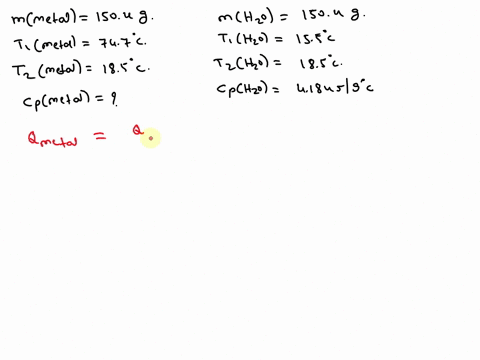 m(metal) = 150.4 g.
T₁(metal) = 74.7°c.
T₂(metal) = 18.5°c.
Cp(metal) = ?
m(H₂O) = 150.4 g.
T₁(H₂O) = 15.5°c
T₂(H₂O) = 18.5°c.
Cp(H₂O) = 4.184 J/g°c
Qmetal = Q